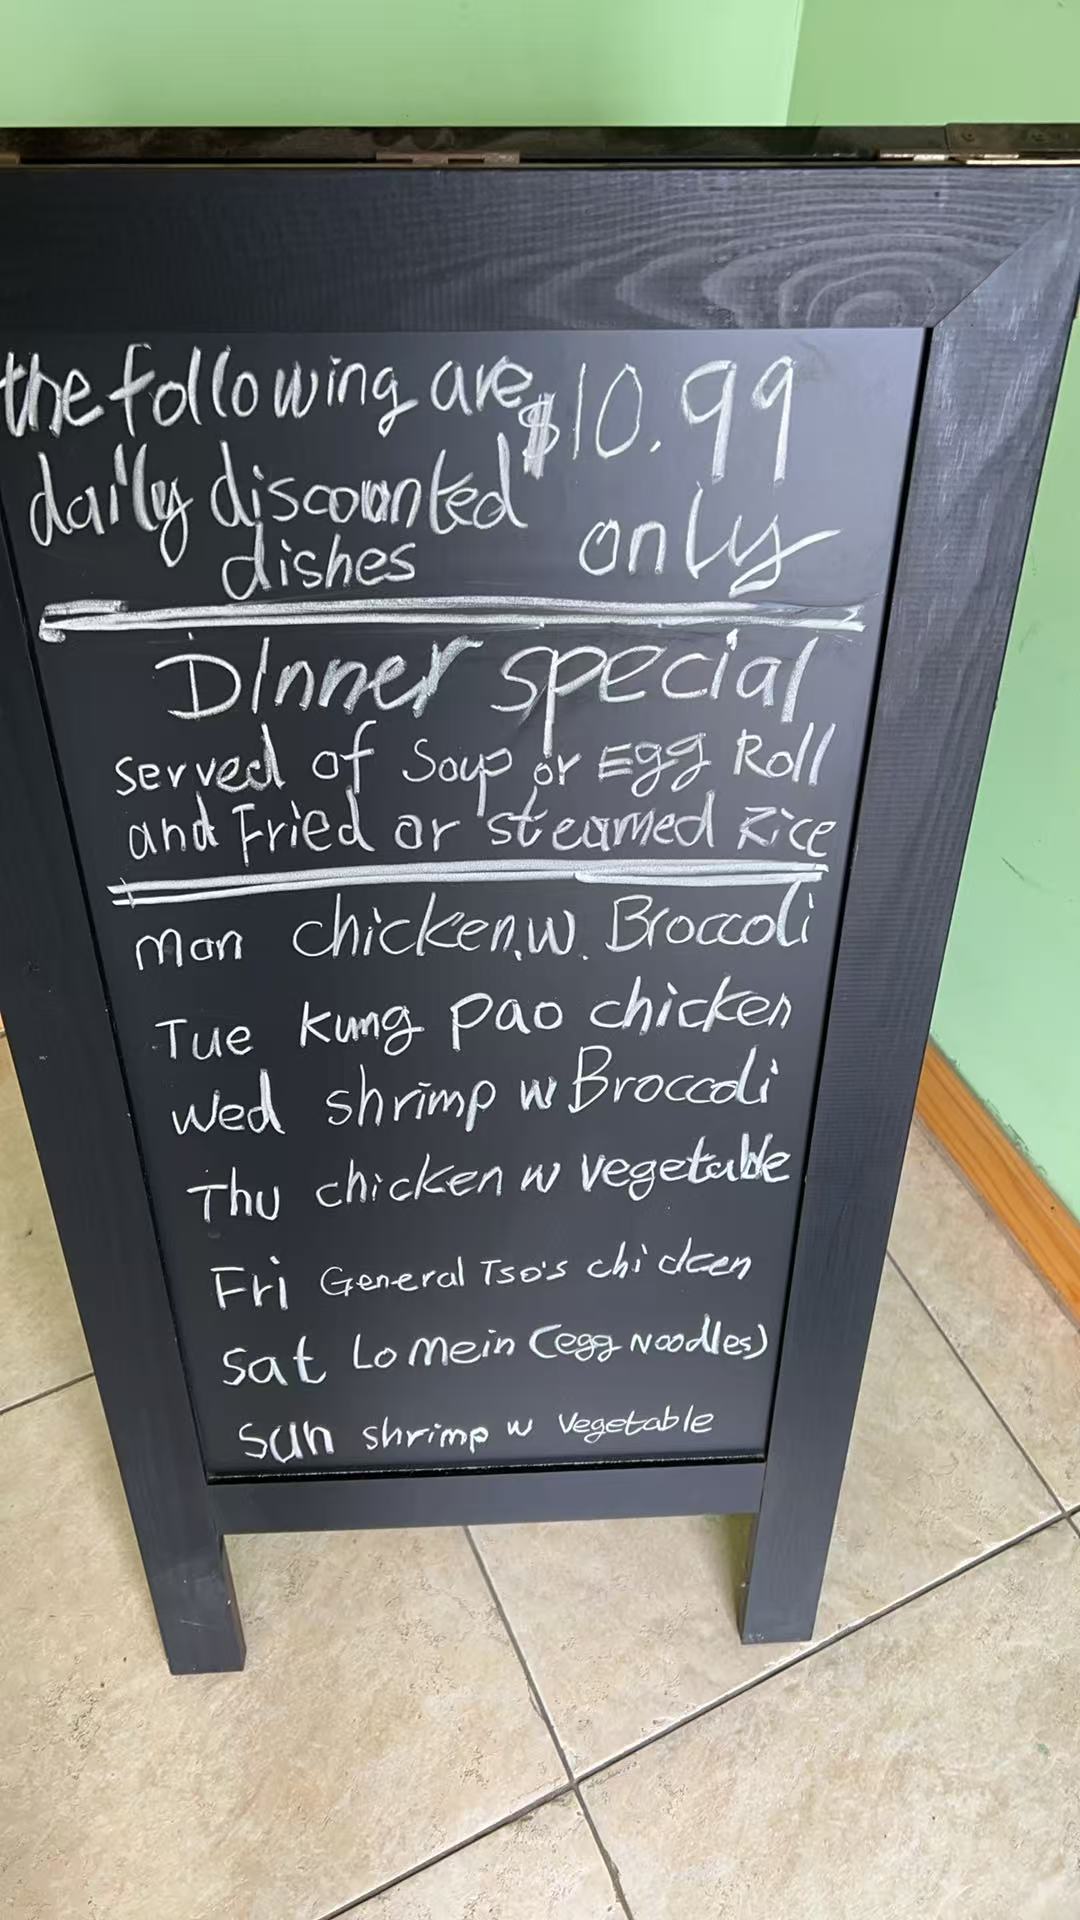 the following are $10.99
daily discounted only
dishes
Dinner special
served of Soup or Egg Roll
and Fried or steamed Rice
Mon chicken.w. Broccoli
Tue kung pao chicken
Wed shrimp w Broccoli
Thu chicken w vegetable
Fri General Tso's chicken
Sat Lo Mein (egg Noodles)
Sun shrimp w vegetable